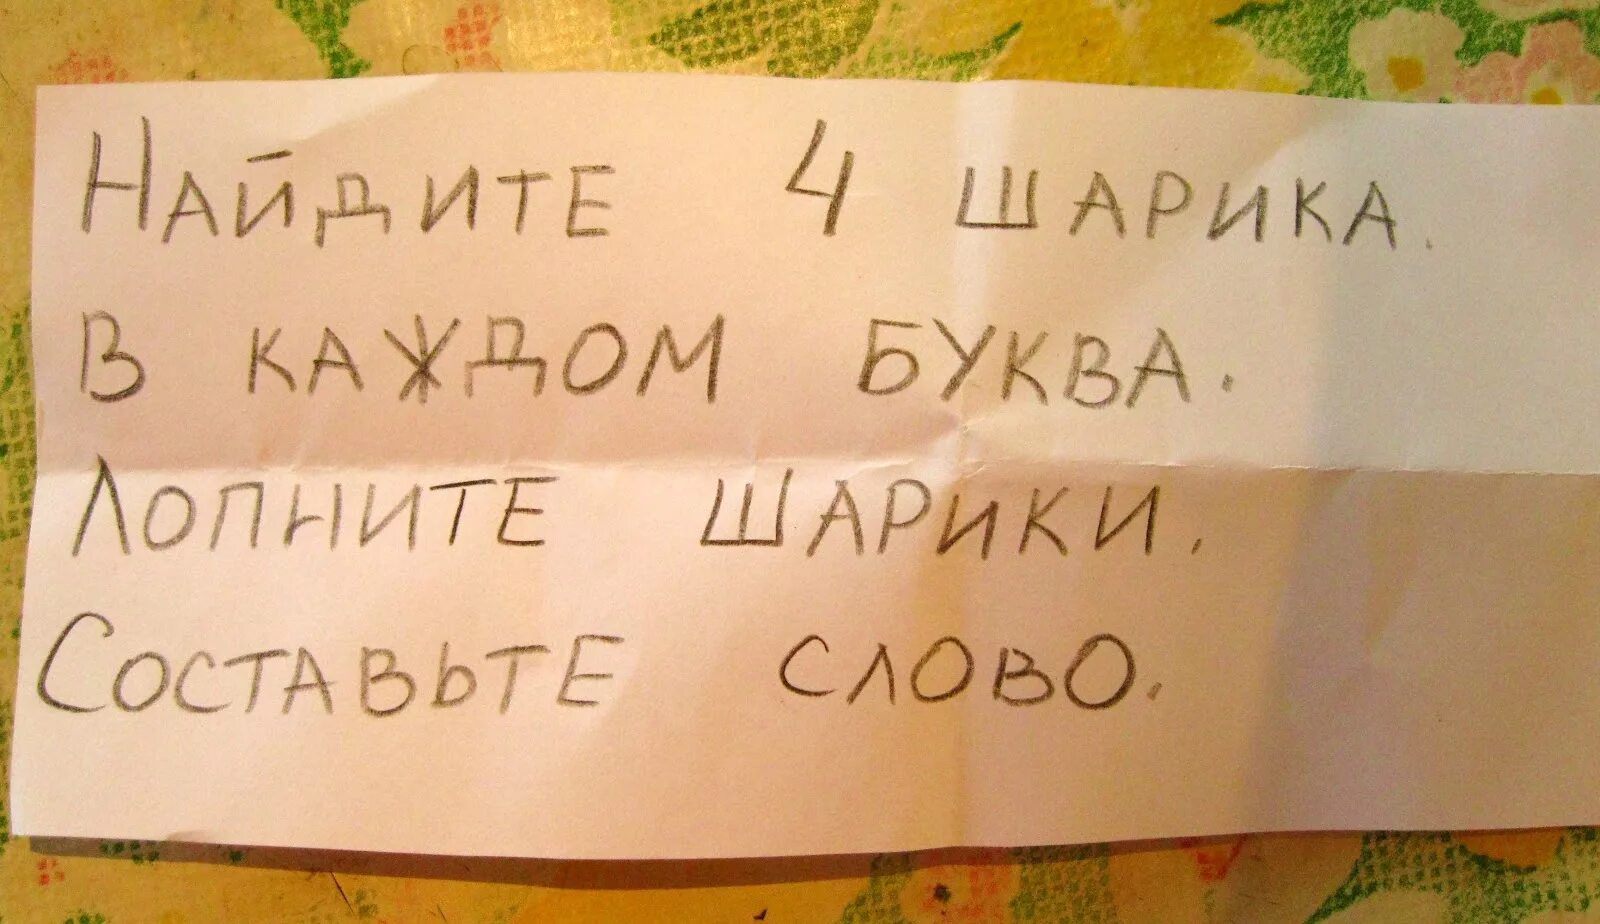 Найдите 4 шарика.
В каждом буква.
Лопните шарики.
Составьте слово.